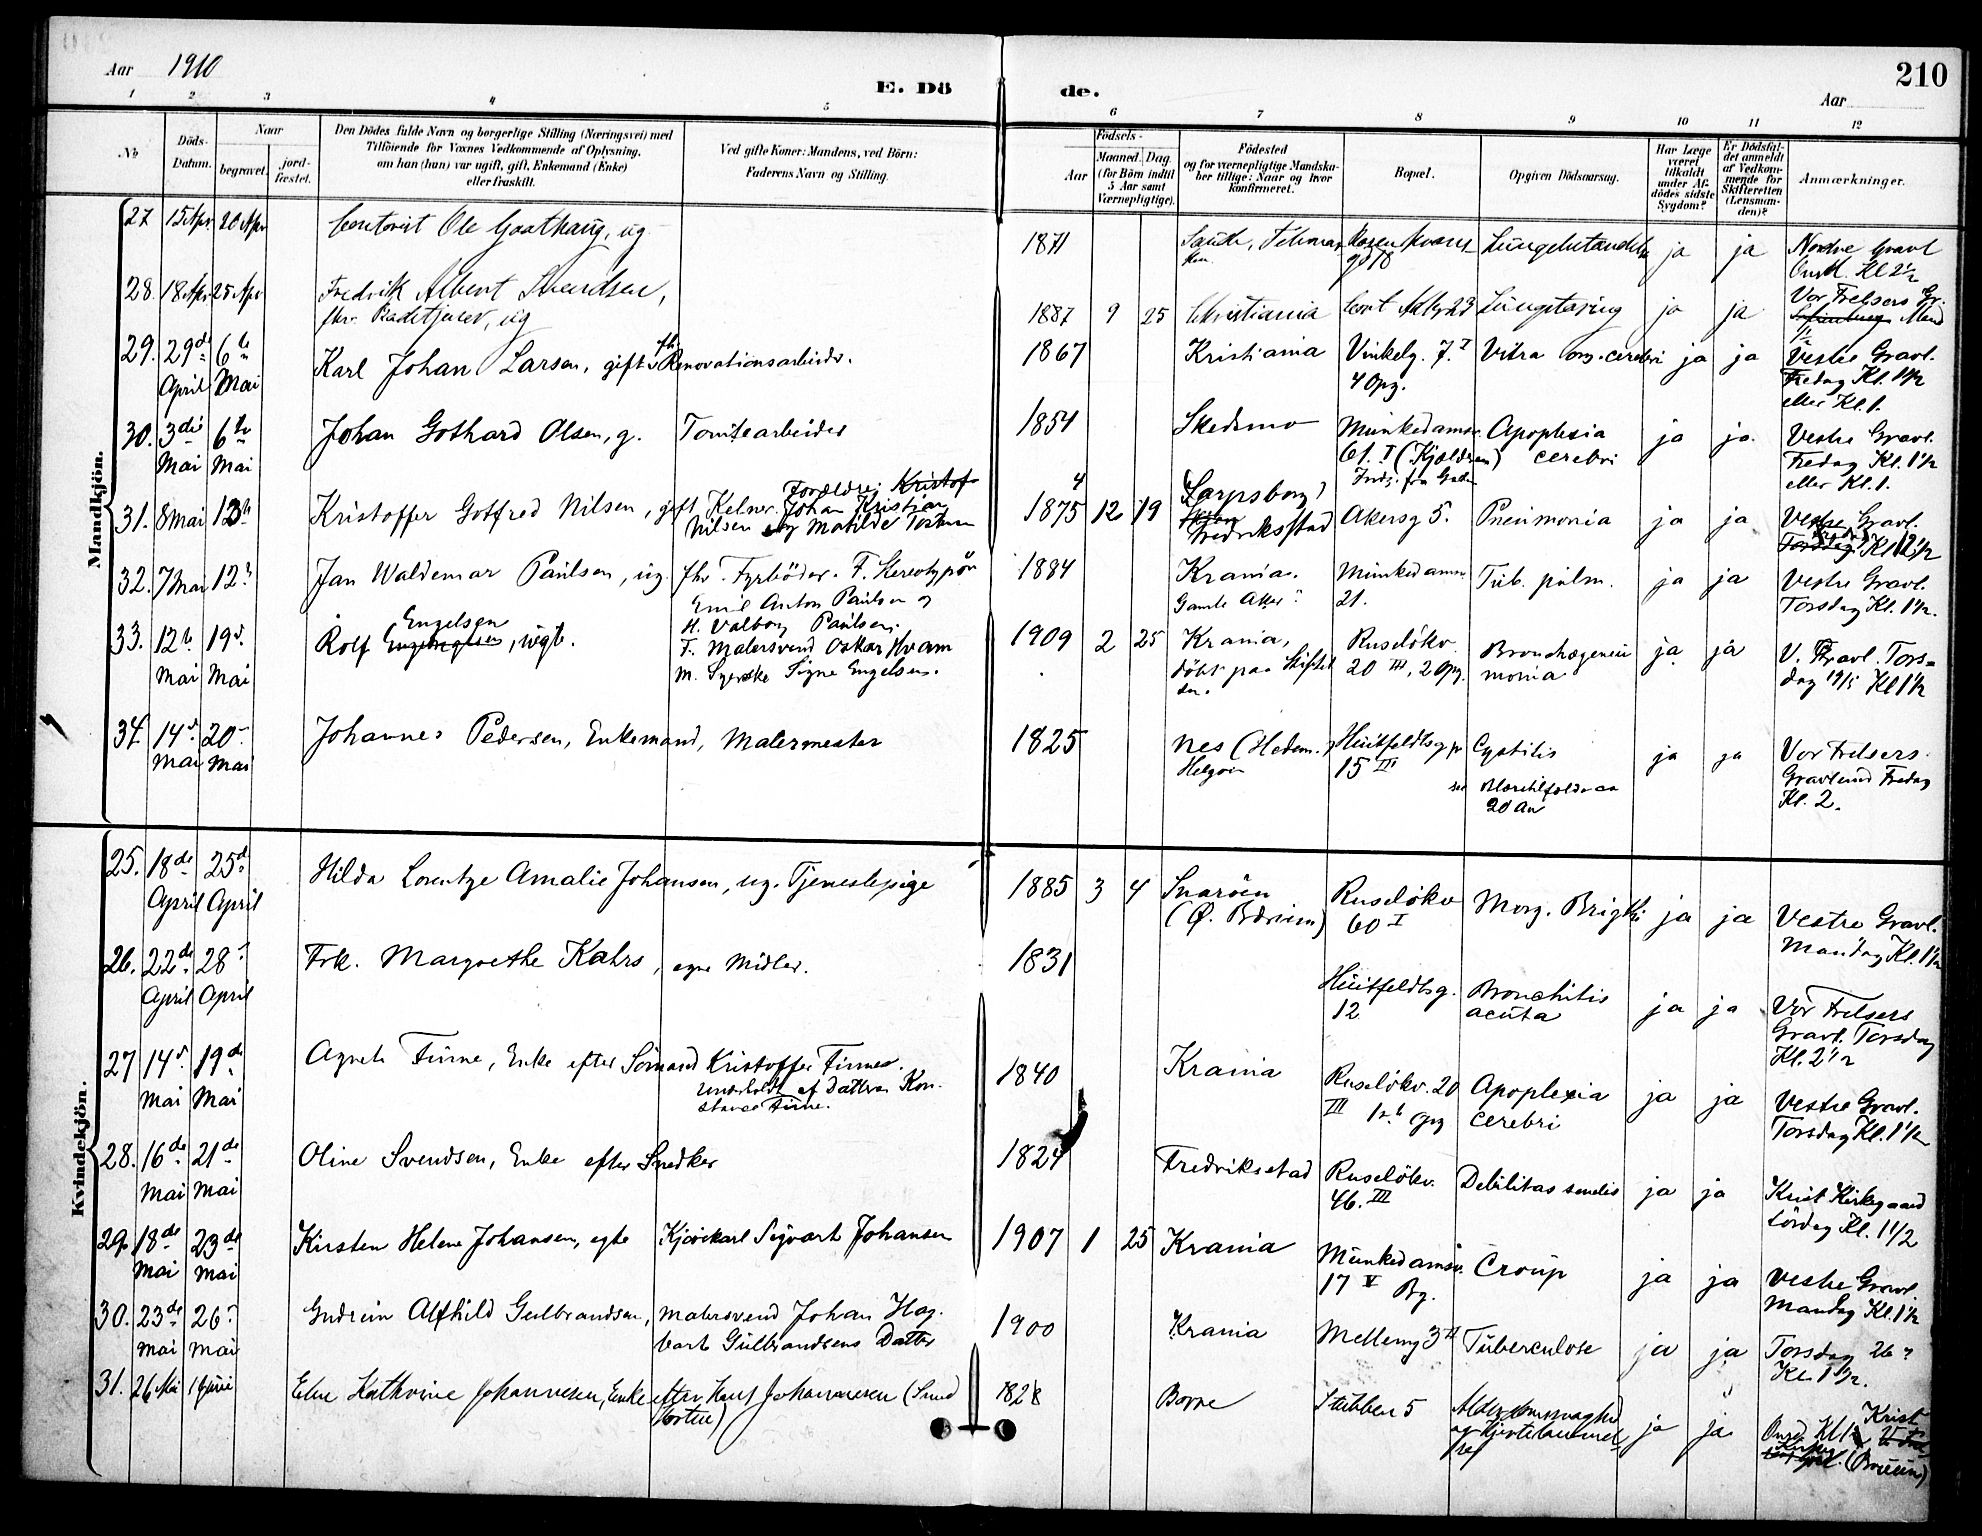 Aar 1910
E. Dö de.
210
Aar
1 2 3 4 5 6 7 8 9 10 11 12
No
Döds-
Datum.
Naar
begravet.
jord-
fæstet.
Den Dödes fulde Navn og borgerlige Stilling (Næringsvei) med
Tilföiende for Voxnes Vedkommende af Oplysning,
om han (hun) var ugift, gift, Enkemand (Enke)
eller fraskilt.
Ved gifte Koner: Mandens, ved Börn:
Faderens Navn og Stilling.
Födsels-
Aar
Maaned. Dag
(for Börn indtil
5 Aar samt
Værnepligtige).
Födested
og for værnepligtige Mandska-
ber tillige: Naar og hvor
konfirmeret.
Bopæl.
Opgiven Dödsaarsag.
Har Læge
været
tilkaldt
under Af-
dödes sidste
Sygdom?
Er Dödsfal-
det anmeldt
af Vedkom-
mende for
Skifteretten
(Lensman-
den)?
Anmærkninger.
Mandkjön.
27 15 Apr. 20 Apr Ole Gaathaug, ug 1871 ja ja Nordre Gravl
Kl 2 1/2
28. 18 Apr. 25 Apr Fredrik Albert Svendsen, 1887 9 25 Christiania ja ja Vor Frelsers Gr.
ug
29. 29de 6te Karl Johan Larsen, gift, Renovationsarbeider. 1867 Kristiania Vinkelg. 7. I Vitra org. cerebri ja ja Vestre Gravl.
April Mai 4 Opg. Fredag Kl. 1 1/2
eller Kl. 1.
30. 3die 6te Johan Gothard Olsen, g. Tomtearbeider 1854 Skedsmo Munkedamsv. Apoplexia ja ja. Vestre Gravl.
Mai Mai 61. I (Kjælderen) cerebri Fredag Kl. 1 1/2
eller Kl. 1.
Forældre: Kristof
31. 8 Mai 13 Kristoffer Gotfred Nilsen, gift Kelner. Johan Kristian 1875 12 19 Sarpsborg Akersg 5. Pneumonia ja ja Vestre Gravl.
Nilsen og Matilde Fredriksstad Torsdag Kl 12 1/2
32. 7 Mai 12 Jan Waldemar Paulsen, ug. fhv. Fyrböder. F. Stereotypör 1884 Krania. Munkedamsv. Tub. pulm. ja ja Vestre Gravl.
Emil Anton Paulsen og Gamle Aker 21. Torsdag Kl. 1 1/2.
H. Valborg Paulsen.
33. 12te 19de Rolf Engelsen, uegte. F. Malersvend Oskar Hvam 1909 2 25 Krania, Ruselökv. Bronchopneu ja ja V. Gravl. Tors-
Mai Mai M. Syerske Signe Engelsen. döbt paa Stiftel 20 III, 2 Opg. monia dag 19/5 Kl 1 1/2
sen.
34. 14de 20 Johannes Pedersen, Enkemand, Malermester 1825 Nes (Hedem.) Huitfeldtsg Cystitis ja ja Vor Frelsers
Mai Mai Helgöen 15 III Gravlund Fredag
20 Kl. 2.
Kvindekjön.
25. 18de 25de Hilda Lorentze Amalie Johansen, ug. Tjenestepige 1885 3 4 Snaröen Ruselökv Morb. Brigthi ja ja Vestre Gravl.
April April (Ø. Bærum) 60 I Mandag Kl. 1 1/2
26. 22de 28 Frk. Margrethe Kahrs, egne Midler. 1831 Huitfeldtsg. Bronchitis ja ja Vor Frelsers
April April 12 acuta Gravl. Torsdag
Kl. 2 1/2
27 14de 19de Agnete Finne, Enke efter Sömand Kristoffer Finne. 1840 Krania Ruselökv. 20 Apoplexia ja ja Vestre Gravl.
Mai Mai underholdt af Datteren Kon- III cerebri Torsdag Kl. 1 1/2
stance Finne.
28. 16de 21de Oline Svendsen, Enke efter Snedker 1824 Fredriksstad Ruselökv. Debilitas senilis ja ja Krist Kirkegaard
Mai Mai 46. III Lördag Kl. 1 1/2
29. 18de 23de Kirsten Helene Johansen, egte Kjörekarl Sigvart Johansen 1907 1 25 Krania Munkedamsv. Croup ja ja Vestre Gravl.
Mai Mai 17 V Bg. Mandag Kl. 1 1/2
30. 23de 26 Gudrun Alfhild Gulbrandsen, Malersvend Johan Hag. 1900 Krania Mellemg 3 II Tuberculose ja ja Torsdag 26
Mai Mai bart Gulbrandsens Datter Kl. 1 1/2.
31. 26 Mai 1 Juni Kathrine Johannesen, Enke efter Knut Johannesen 1828 Borre Stubben 5 Alderdomssvaghed ja ja Krist
og Onsd. Kl 1